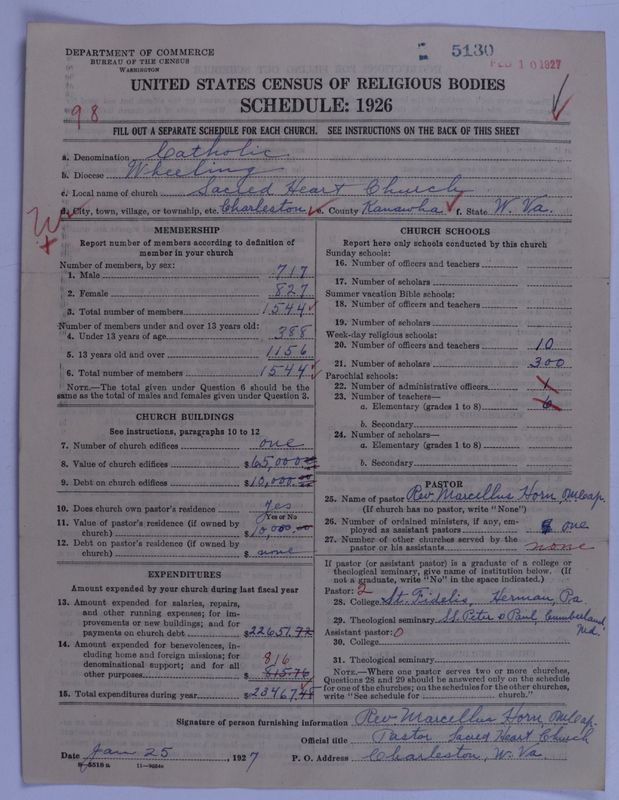 DEPARTMENT OF COMMERCE
BUREAU OF THE CENSUS
WASHINGTON
5130
FEB 10 1927
UNITED STATES CENSUS OF RELIGIOUS BODIES
SCHEDULE: 1926
98
FILL OUT A SEPARATE SCHEDULE FOR EACH CHURCH. SEE INSTRUCTIONS ON THE BACK OF THIS SHEET
a. Denomination Catholic
b. Diocese Wheeling
c. Local name of church Sacred Heart Church
d. City, town, village, or township, etc. Charleston e. County Kanawha f. State W. Va.
MEMBERSHIP
Report number of members according to definition of
member in your church
Number of members, by sex:
1. Male 717
2. Female 827
3. Total number of members 1544
Number of members under and over 13 years old:
4. Under 13 years of age 388
5. 13 years old and over 1156
6. Total number of members 1544
NOTE.—The total given under Question 6 should be the
same as the total of males and females given under Question 3.
CHURCH BUILDINGS
See instructions, paragraphs 10 to 12
7. Number of church edifices one
8. Value of church edifices $65,000.00
9. Debt on church edifices $10,000.00
10. Does church own pastor's residence? yes
Yes or No
11. Value of pastor's residence (if owned by
church) $10,000.00
12. Debt on pastor's residence (if owned by
church) $ none
EXPENDITURES
Amount expended by your church during last fiscal year
13. Amount expended for salaries, repairs,
and other running expenses; for im-
provements or new buildings; and for
payments on church debt $22651.72
14. Amount expended for benevolences, in-
cluding home and foreign missions; for
denominational support; and for all 816
other purposes $815.76
15. Total expenditures during year $23467.48
CHURCH SCHOOLS
Report here only schools conducted by this church
Sunday schools:
16. Number of officers and teachers
17. Number of scholars
Summer vacation Bible schools:
18. Number of officers and teachers
19. Number of scholars
Week-day religious schools:
20. Number of officers and teachers 10
21. Number of scholars 300
Parochial schools:
22. Number of administrative officers 1
23. Number of teachers—
a. Elementary (grades 1 to 8) 6
b. Secondary
24. Number of scholars—
a. Elementary (grades 1 to 8)
b. Secondary
PASTOR
25. Name of pastor Rev Marcellus Horn, OMCap.
(If church has no pastor, write "None")
26. Number of ordained ministers, if any, em-
ployed as assistant pastors one
27. Number of other churches served by the
pastor or his assistants none
If pastor (or assistant pastor) is a graduate of a college or
theological seminary, give name of institution below. (If
not a graduate, write "No" in the space indicated.)
Pastor: 2
28. College St. Fidelis, Herman, Pa
29. Theological seminary St. Peter & Paul, Cumberland,
Md.
Assistant pastor: 0
30. College
31. Theological seminary
NOTE.—Where one pastor serves two or more churches,
Questions 28 and 29 should be answered only on the schedule
for one of the churches; on the schedules for the other churches,
write "See schedule for church."
Signature of person furnishing information Rev Marcellus Horn OMCap.
Official title Pastor Sacred Heart Church
Date Jan 25, 1927 P. O. Address Charleston, W. Va.